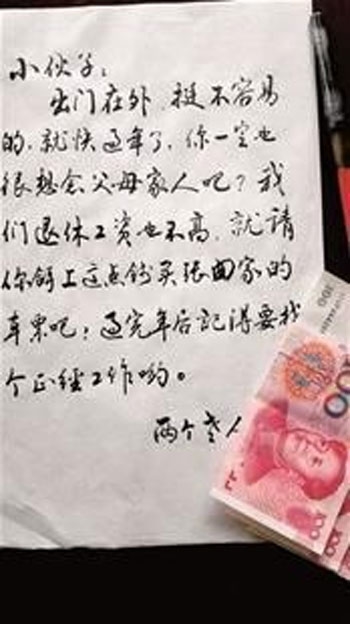 小伙子:
出门在外,挺不容易
的,就快过年了,你一定也
很想念父母家人吧?我
们退休工资也不高,就请
你拿上这点钱买张回家的
车票吧!过完年后記得要找
个正经工作哟。
两个老人
100
100
100